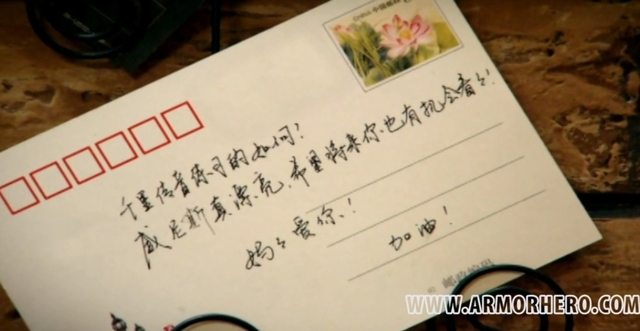 中国邮政
千里传音练习的如何？
威尼斯真漂亮，希望将来你也有机会看看！
妈妈爱你！
加油！
WWW.ARMORHERO.COM